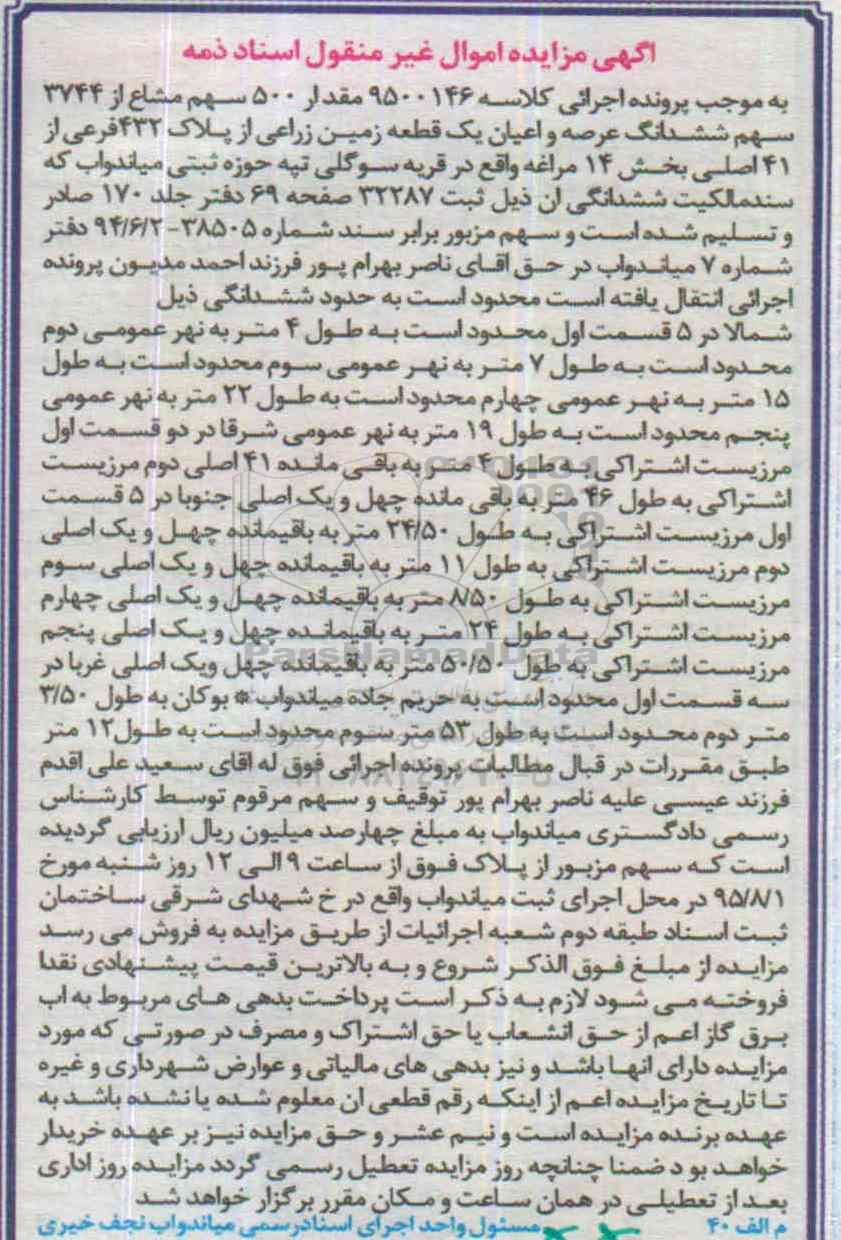 اگهی مزایده اموال غیر منقول اسناد ذمه
به موجب پرونده اجرائی کلاسه ۹۵۰۰۱۴۶ مقدار ۵۰۰ سهم مشاع از ۳۷۴۴
سهم ششدانگ عرصه و اعیان یک قطعه زمین زراعی از پلاک ۴۳۲فرعی از
۴۱ اصلی بخش ۱۴ مراغه واقع در قریه سوگلی تپه حوزه ثبتی میاندواب که
سندمالکیت ششدانگی ان ذیل ثبت ۳۲۲۸۷ صفحه ۶۹ دفتر جلد ۱۷۰ صادر
و تسلیم شده است و سهم مزبور برابر سند شماره ۳۸۵۰۵-۹۴/۶/۲ دفتر
شماره ۷ میاندواب در حق اقای ناصر بهرام پور فرزند احمد مدیون پرونده
اجرائی انتقال یافته است محدود است به حدود ششدانگی ذیل
شمالا در ۵ قسمت اول محدود است به طول ۴ متر به نهر عمومی دوم
محدود است به طول ۷ متر به نهر عمومی سوم محدود است به طول
۱۵ متر به نهر عمومی چهارم محدود است به طول ۲۲ متر به نهر عمومی
پنجم محدود است به طول ۱۹ متر به نهر عمومی شرقا در دو قسمت اول
مرزیست اشتراکی به طول ۴ متر به باقی مانده ۴۱ اصلی دوم مرزیست
اشتراکی به طول ۴۶ متر به باقی مانده چهل و یک اصلی جنوبا در ۵ قسمت
اول مرزیست اشتراکی به طول ۲۴/۵۰ متر به باقیمانده چهل و یک اصلی
دوم مرزیست اشتراکی به طول ۱۱ متر به باقیمانده چهل و یک اصلی سوم
مرزیست اشتراکی به طول ۸/۵۰ متر به باقیمانده چهل و یک اصلی چهارم
مرزیست اشتراکی به طول ۲۴ متر به باقیمانده چهل و یک اصلی پنجم
مرزیست اشتراکی به طول ۵۰/۵۰ متر به باقیمانده چهل ویک اصلی غربا در
سه قسمت اول محدود است به حریم جاده میاندواب * بوکان به طول ۳/۵۰
متر دوم محدود است به طول ۵۳ متر سوم محدود است به طول۱۲ متر
طبق مقررات در قبال مطالبات پرونده اجرائی فوق له اقای سعید علی اقدم
فرزند عیسی علیه ناصر بهرام پور توقیف و سهم مرقوم توسط کارشناس
رسمی دادگستری میاندواب به مبلغ چهارصد میلیون ریال ارزیابی گردیده
است که سهم مزبور از پلاک فوق از ساعت ۹ الی ۱۲ روز شنبه مورخ
۹۵/۸/۱ در محل اجرای ثبت میاندواب واقع در خ شهدای شرقی ساختمان
ثبت اسناد طبقه دوم شعبه اجرائیات از طریق مزایده به فروش می رسد
مزایده از مبلغ فوق الذکر شروع و به بالاترین قیمت پیشنهادی نقدا
فروخته می شود لازم به ذکر است پرداخت بدهی های مربوط به اب
برق گاز اعم از حق انشعاب یا حق اشتراک و مصرف در صورتی که مورد
مزایده دارای انها باشد و نیز بدهی های مالیاتی و عوارض شهرداری و غیره
تا تاریخ مزایده اعم از اینکه رقم قطعی ان معلوم شده یا نشده باشد به
عهده برنده مزایده است و نیم عشر و حق مزایده نیز بر عهده خریدار
خواهد بو د ضمنا چنانچه روز مزایده تعطیل رسمی گردد مزایده روز اداری
بعد از تعطیلی در همان ساعت و مکان مقرر برگزار خواهد شد
م الف ۴۰ مسئول واحد اجرای اسنادرسمی میاندواب نجف خیری
ParsNamadData